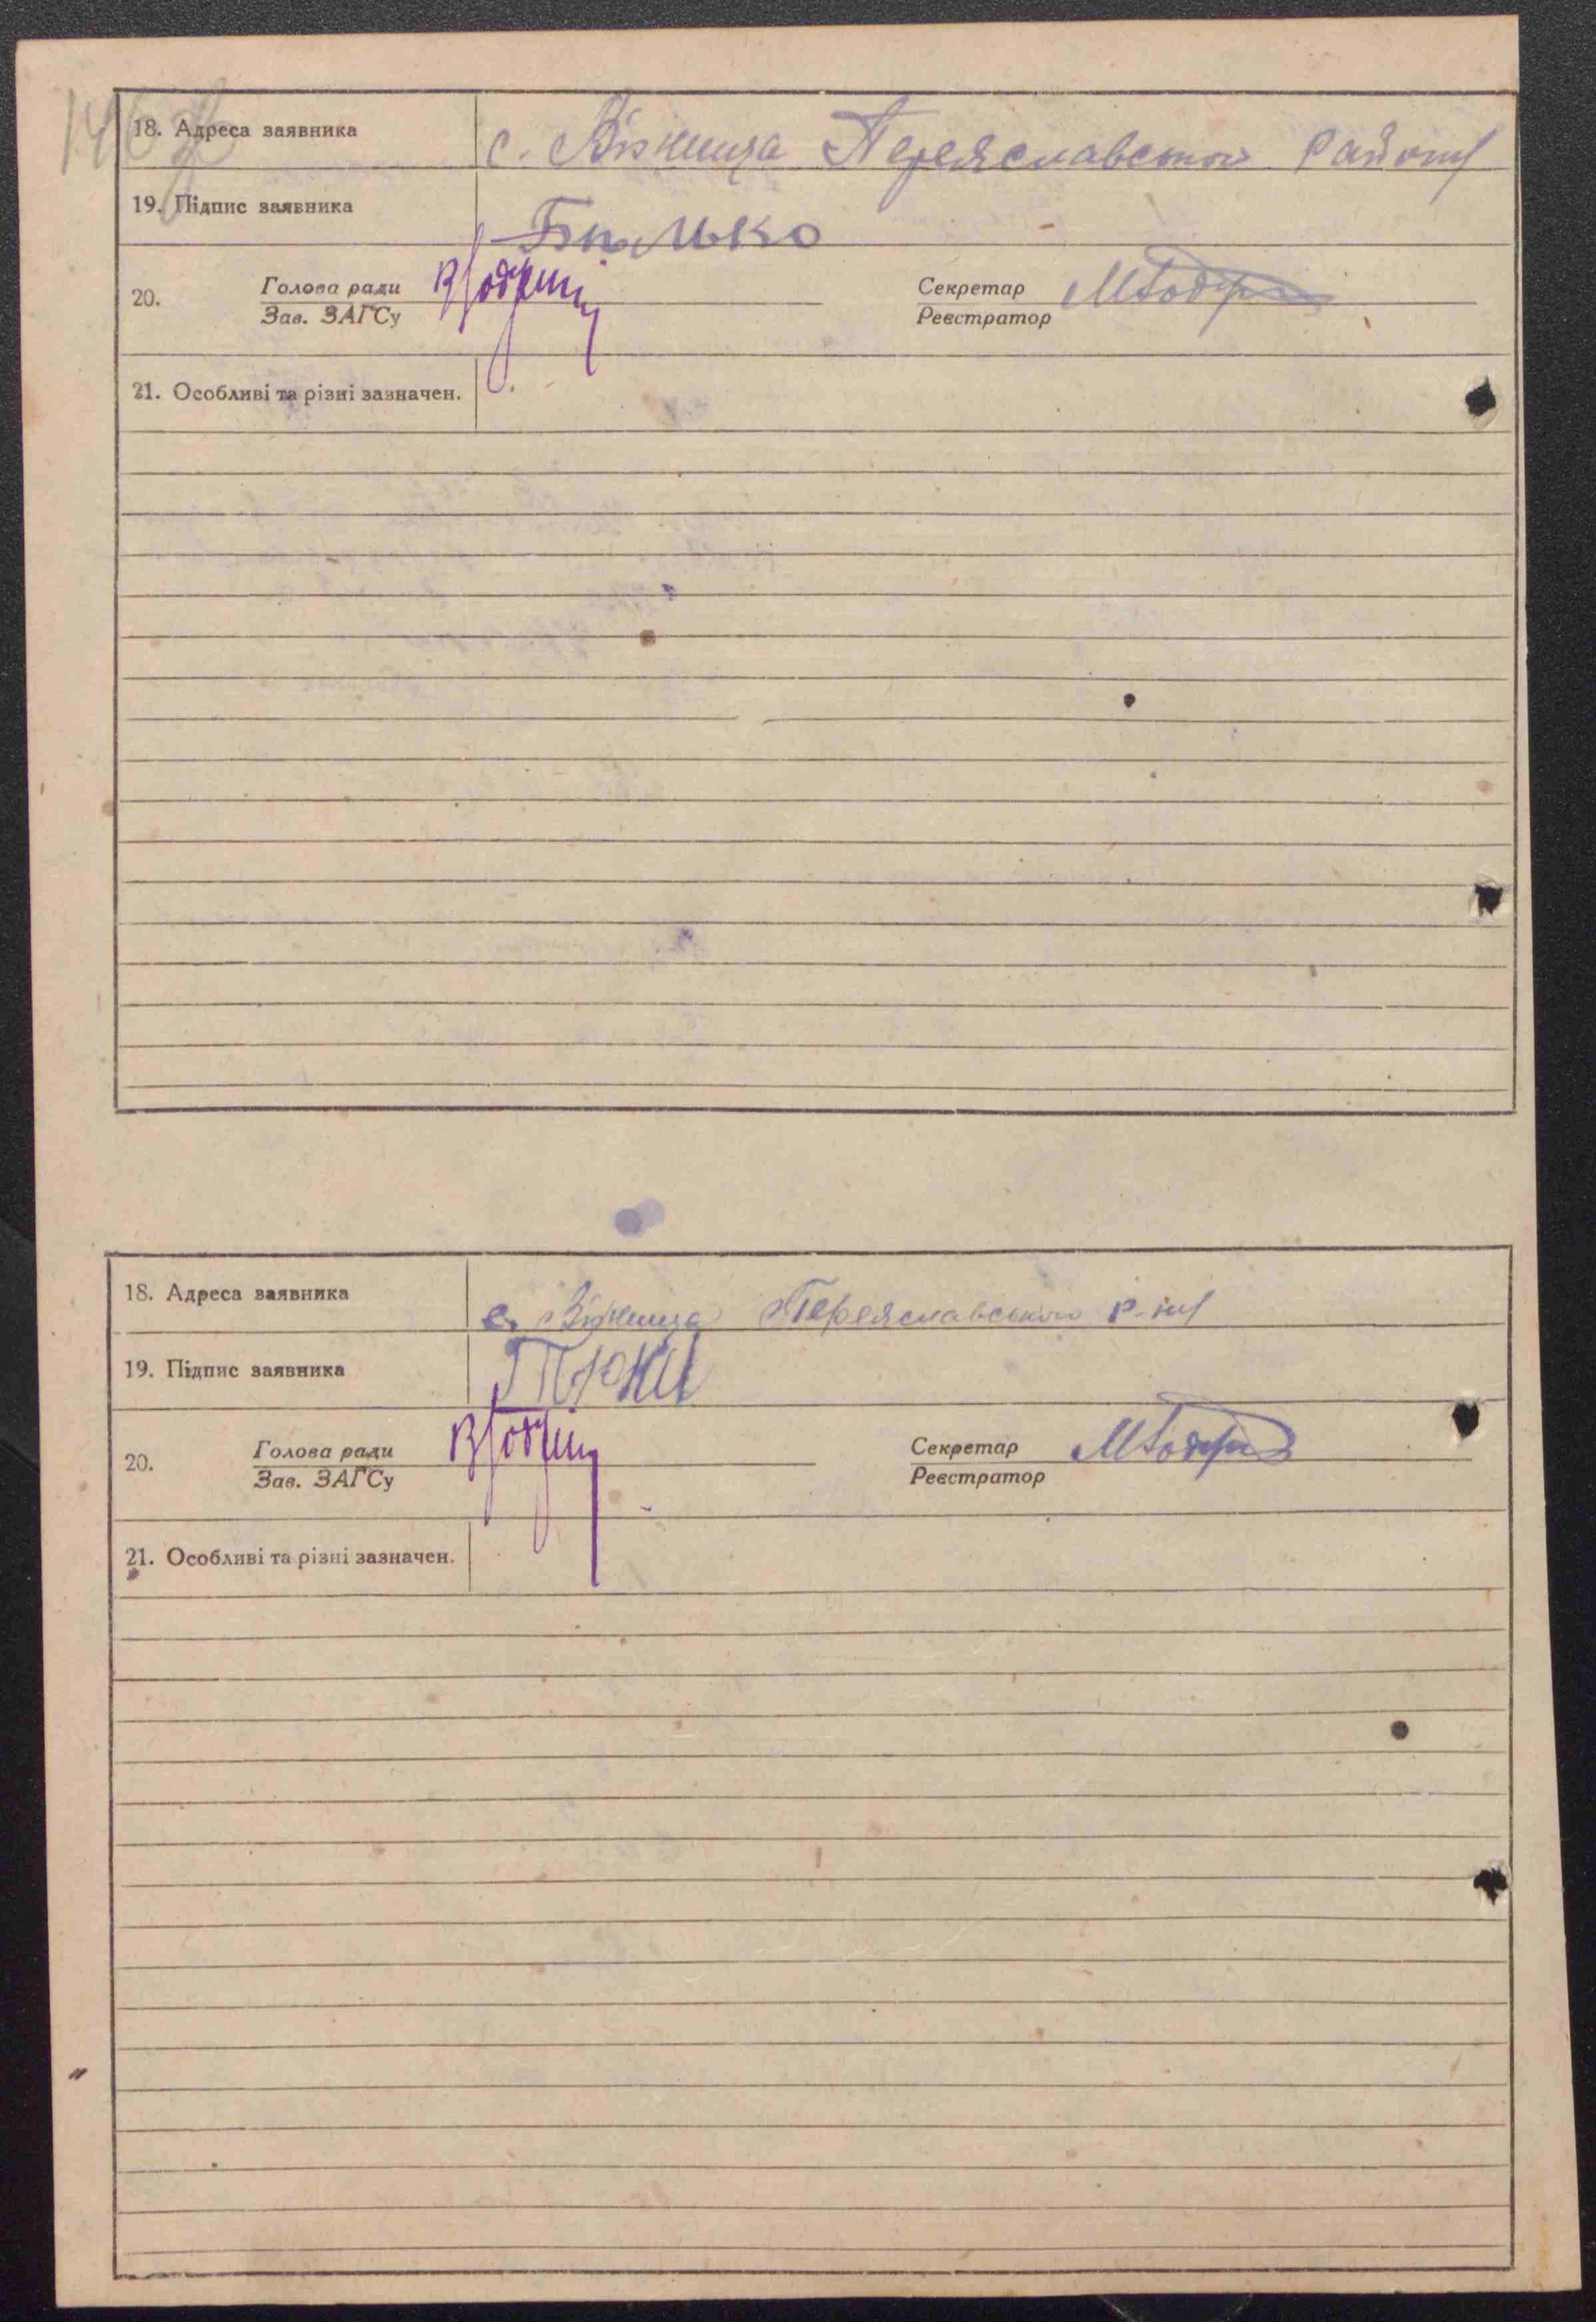 18. Адреса заявника с. Віжница Переяславського району
19. Підпис заявника
20. Голова ради Секретар
Зав. ЗАГСу Реєстратор
21. Особливі та різні зазначен.
18. Адреса заявника с. Віжница Переяславського р-ну
19. Підпис заявника
20. Голова ради Секретар
Зав. ЗАГСу Реєстратор
21. Особливі та різні зазначен.